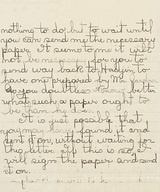 nothing to do but to wait until
you can send me the necessary
paper. It seems to me it will
not be necessary for you to
send way back to Hadlyn to
have one prepared by Mr.
as you doubtless know better
what such a paper ought to
be
It is just possible that
you may have found it and
sent it on, without waiting for
this letter. If this is so I
will sign the paper and send
it on.